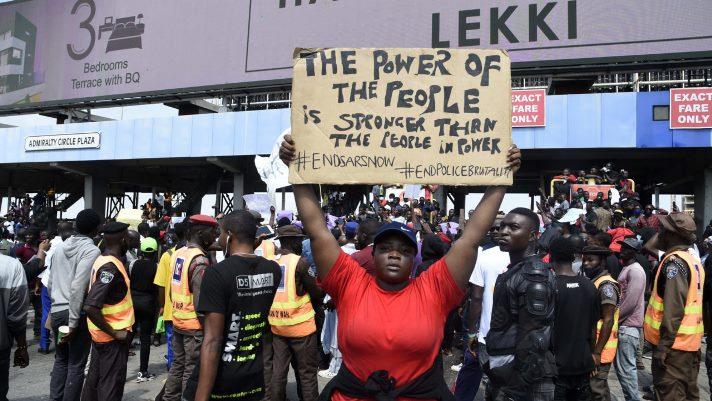 LEKKI
3
Bedrooms
Terrace with BQ
ADMIRALTY CIRCLE PLAZA
EXACT
FARE
ONLY
EXACT
FARE
ONLY
THE POWER OF
THE PEOPLE
is STRONGER THAN
THE PEOPLE IN POWER
#ENDSARSNOW #ENDPOLICEBRUTALITY
DSMART